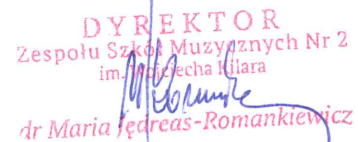 DYREKTOR
Zespołu Szkół Muzycznych Nr 2
im. Wojciecha Kilara
dr Maria Jędreas-Romankiewicz